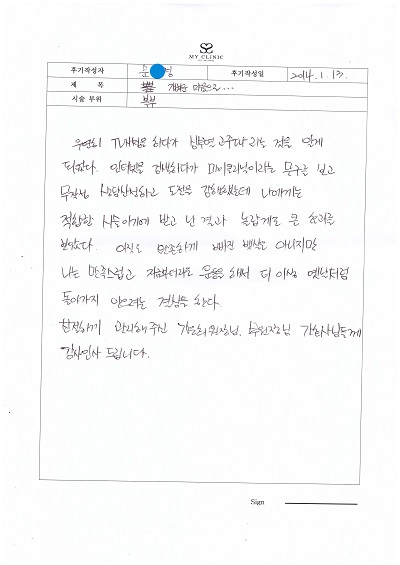 MY CLINIC
후기작성자 문 경 후기작성일 2014. 1. 13.
제 목 개운한 마음으로...
시술 부위 복부
우연히 TV개념을 하다가 심부면 고주파라는 것을 알게
되었다. 인터넷을 검색하다가 마이클리닉이라는 문구를 보고
무작정 상담신청하고 도전을 감행했는데 나에게는
적합한 시술이기에 받고 난 결과 놀랍게도 큰 효과를
보았다. 아직도 만족하게 빠진 뱃살은 아니지만
나는 만족스럽고 지금부터라도 운동을 해서 더 이상 옛날처럼
돌아가지 않으려는 결심을 한다.
친절하게 관리해주신 원장님, 부원장님 간호사님들께
감사인사 드립니다.
Sign